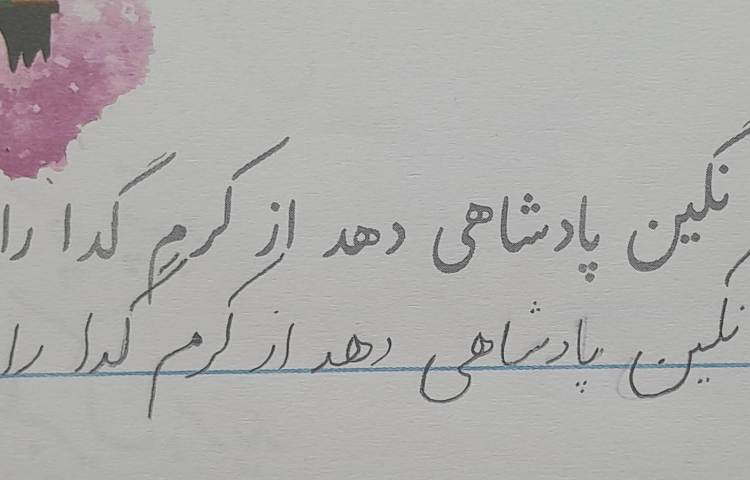 نگین پادشاهی دهد از کرمِ گدا را
نگین پادشاهی دهد از کرم گدا را